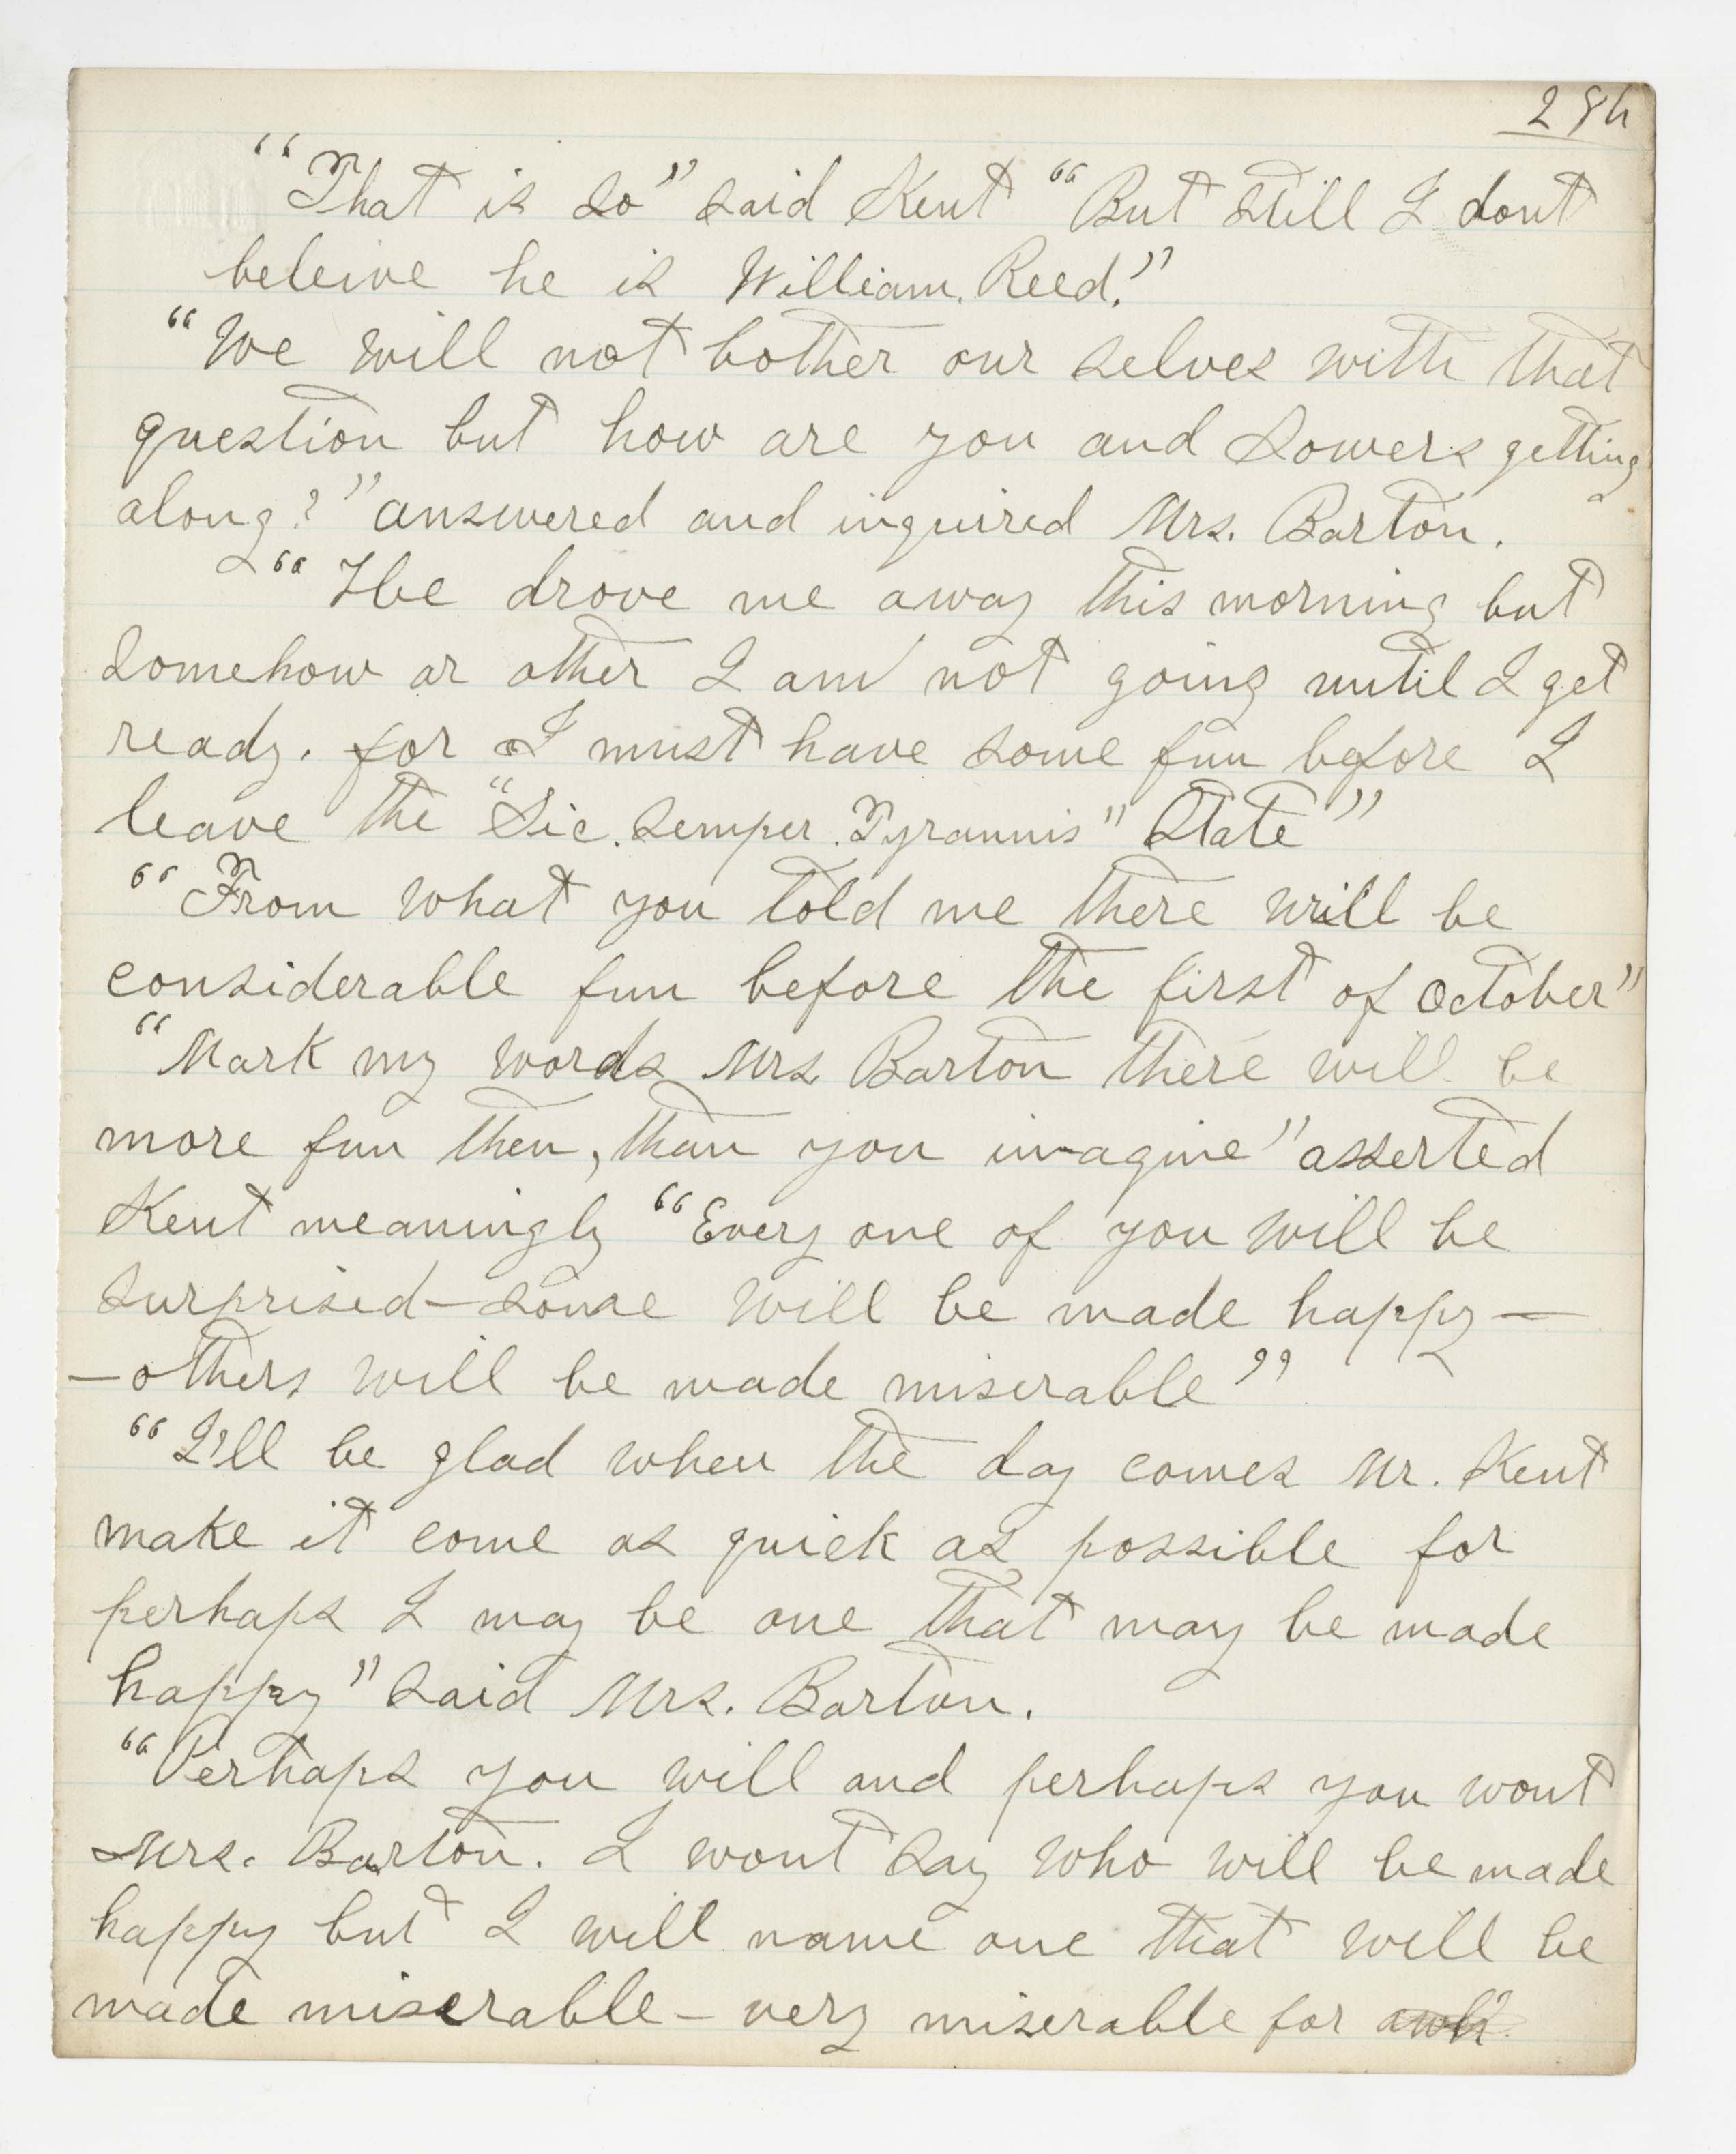 "That is so" said Kent "But still I dont
beleive he is William. Reed."
"We will not bother our selves with that
question but how are you and Sowers getting
along?" answered and inquired Mrs. Barton.
"He drove me away this morning but
somehow or other I am not going until I get
ready. for I must have some fun before I
leave the "Sic. Semper. Tyrannis" State"
"From what you told me there will be
considerable fun before the first of October"
"Mark my words Mrs Barton there will be
more fun then, than you imagine" asserted
Kent meaningly "Every one of you will be
surprised—some will be made happy—
—others will be made miserable"
"I'll be glad when the day comes Mr. Kent
make it come as quick as possible for
perhaps I may be one that may be made
happy" said Mrs. Barton.
"Perhaps you will and perhaps you wont
Mrs. Barton. I wont say who will be made
happy but I will name one that will be
made miserable – very miserable for